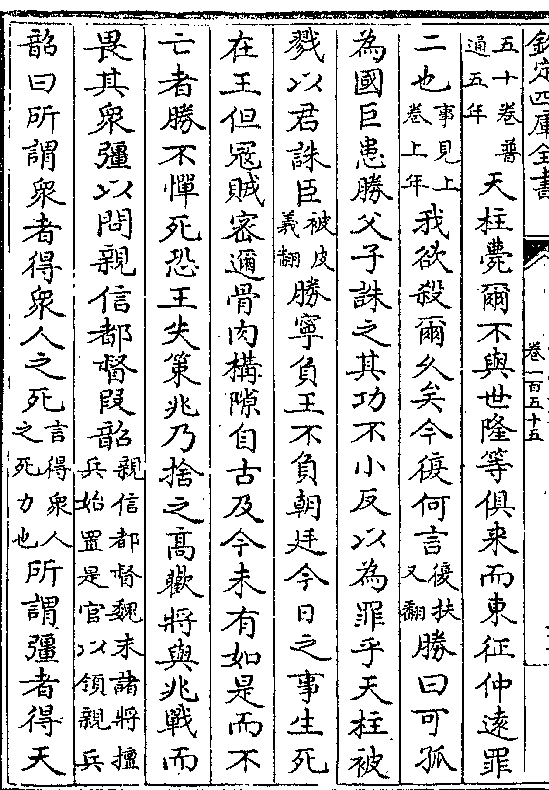 欽定四庫全書
卷一百五十五
五十卷普通五年天柱薨爾不與世隆等俱來而東征仲遠罪
二也事見上卷上年我欲殺爾久矣今復何言復扶又翻勝曰可孤
為國巨患勝父子誅之其功不小反以為罪乎天柱被
戮以君誅臣被皮義翻勝寧負王不負朝廷今日之事生死
在王但冦賊密邇骨肉構隙自古及今未有如是而不
亡者勝不憚死恐王失策兆乃捨之高歡將與兆戰而
畏其衆彊以問親信都督叚韶親信都督魏末諸將擅兵始置是官以領親兵
韶曰所謂衆者得衆人之死言得衆人之死力也所謂彊者得天